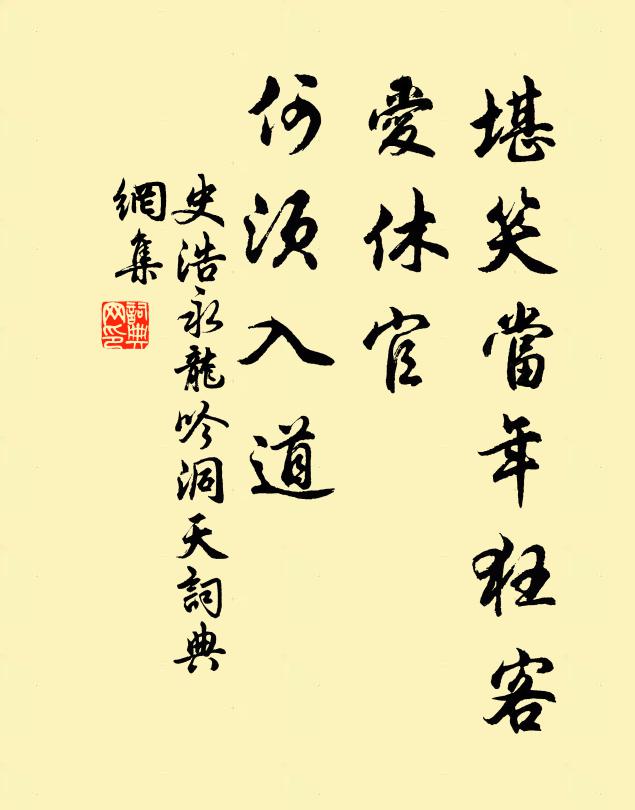 堪笑當年狂客
愛休官
何須入道
史浩永龍吟洞天詞典
網集
詞典
网印